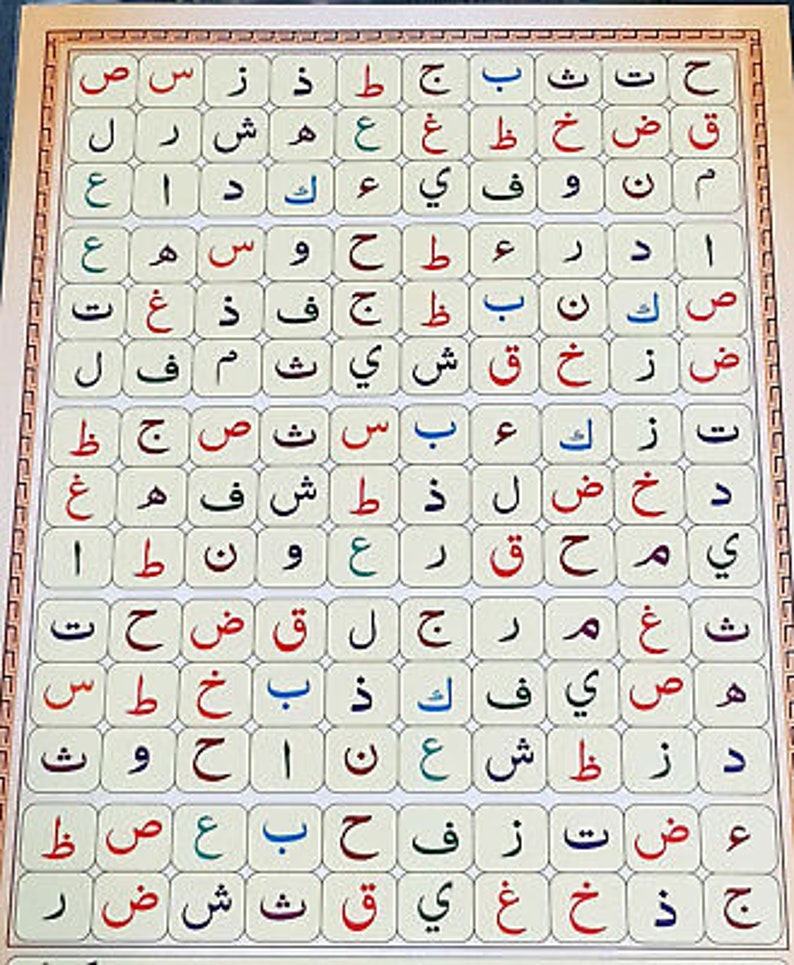 ح ت ث ب ج ط ذ ز س ص
ق ض خ ظ غ ع ه ش ر ل
م ن و ف ي ء ك د ا ع
ا د ر ء ط ح و س ه ع
ص ك ن ب ظ ج ف ذ غ ت
ض ز خ ق ش ي ث م ف ل
ت ز ك ء ب س ث ص ج ظ
د خ ض ل ذ ط ش ف ه غ
ي م ح ق ر ع و ن ط ا
ث غ م ر ج ل ق ض ح ت
ه ص ي ف ك ذ ب خ ط س
د ز ظ ش ع ن ا ح و ث
ء ض ت ز ف ح ب ع ص ظ
ج ذ خ غ ي ق ث ش ض ر